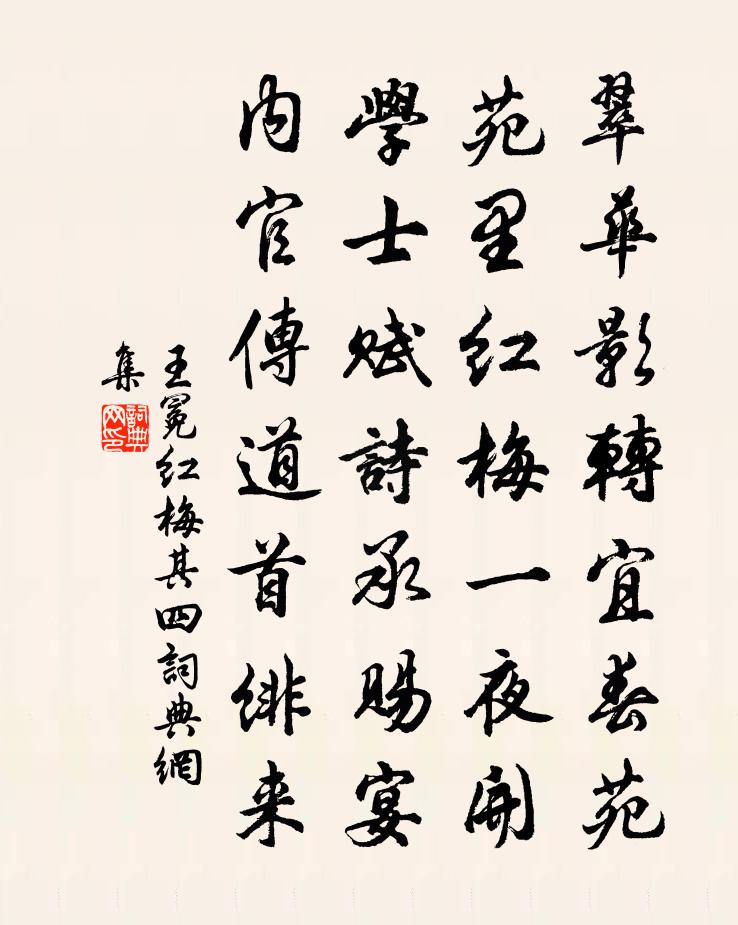 翠華影轉宜春苑
苑里紅梅一夜開
學士賦詩承賜宴
内官傳道首緋来
王冕紅梅其四詞典網
集
詞典
网印